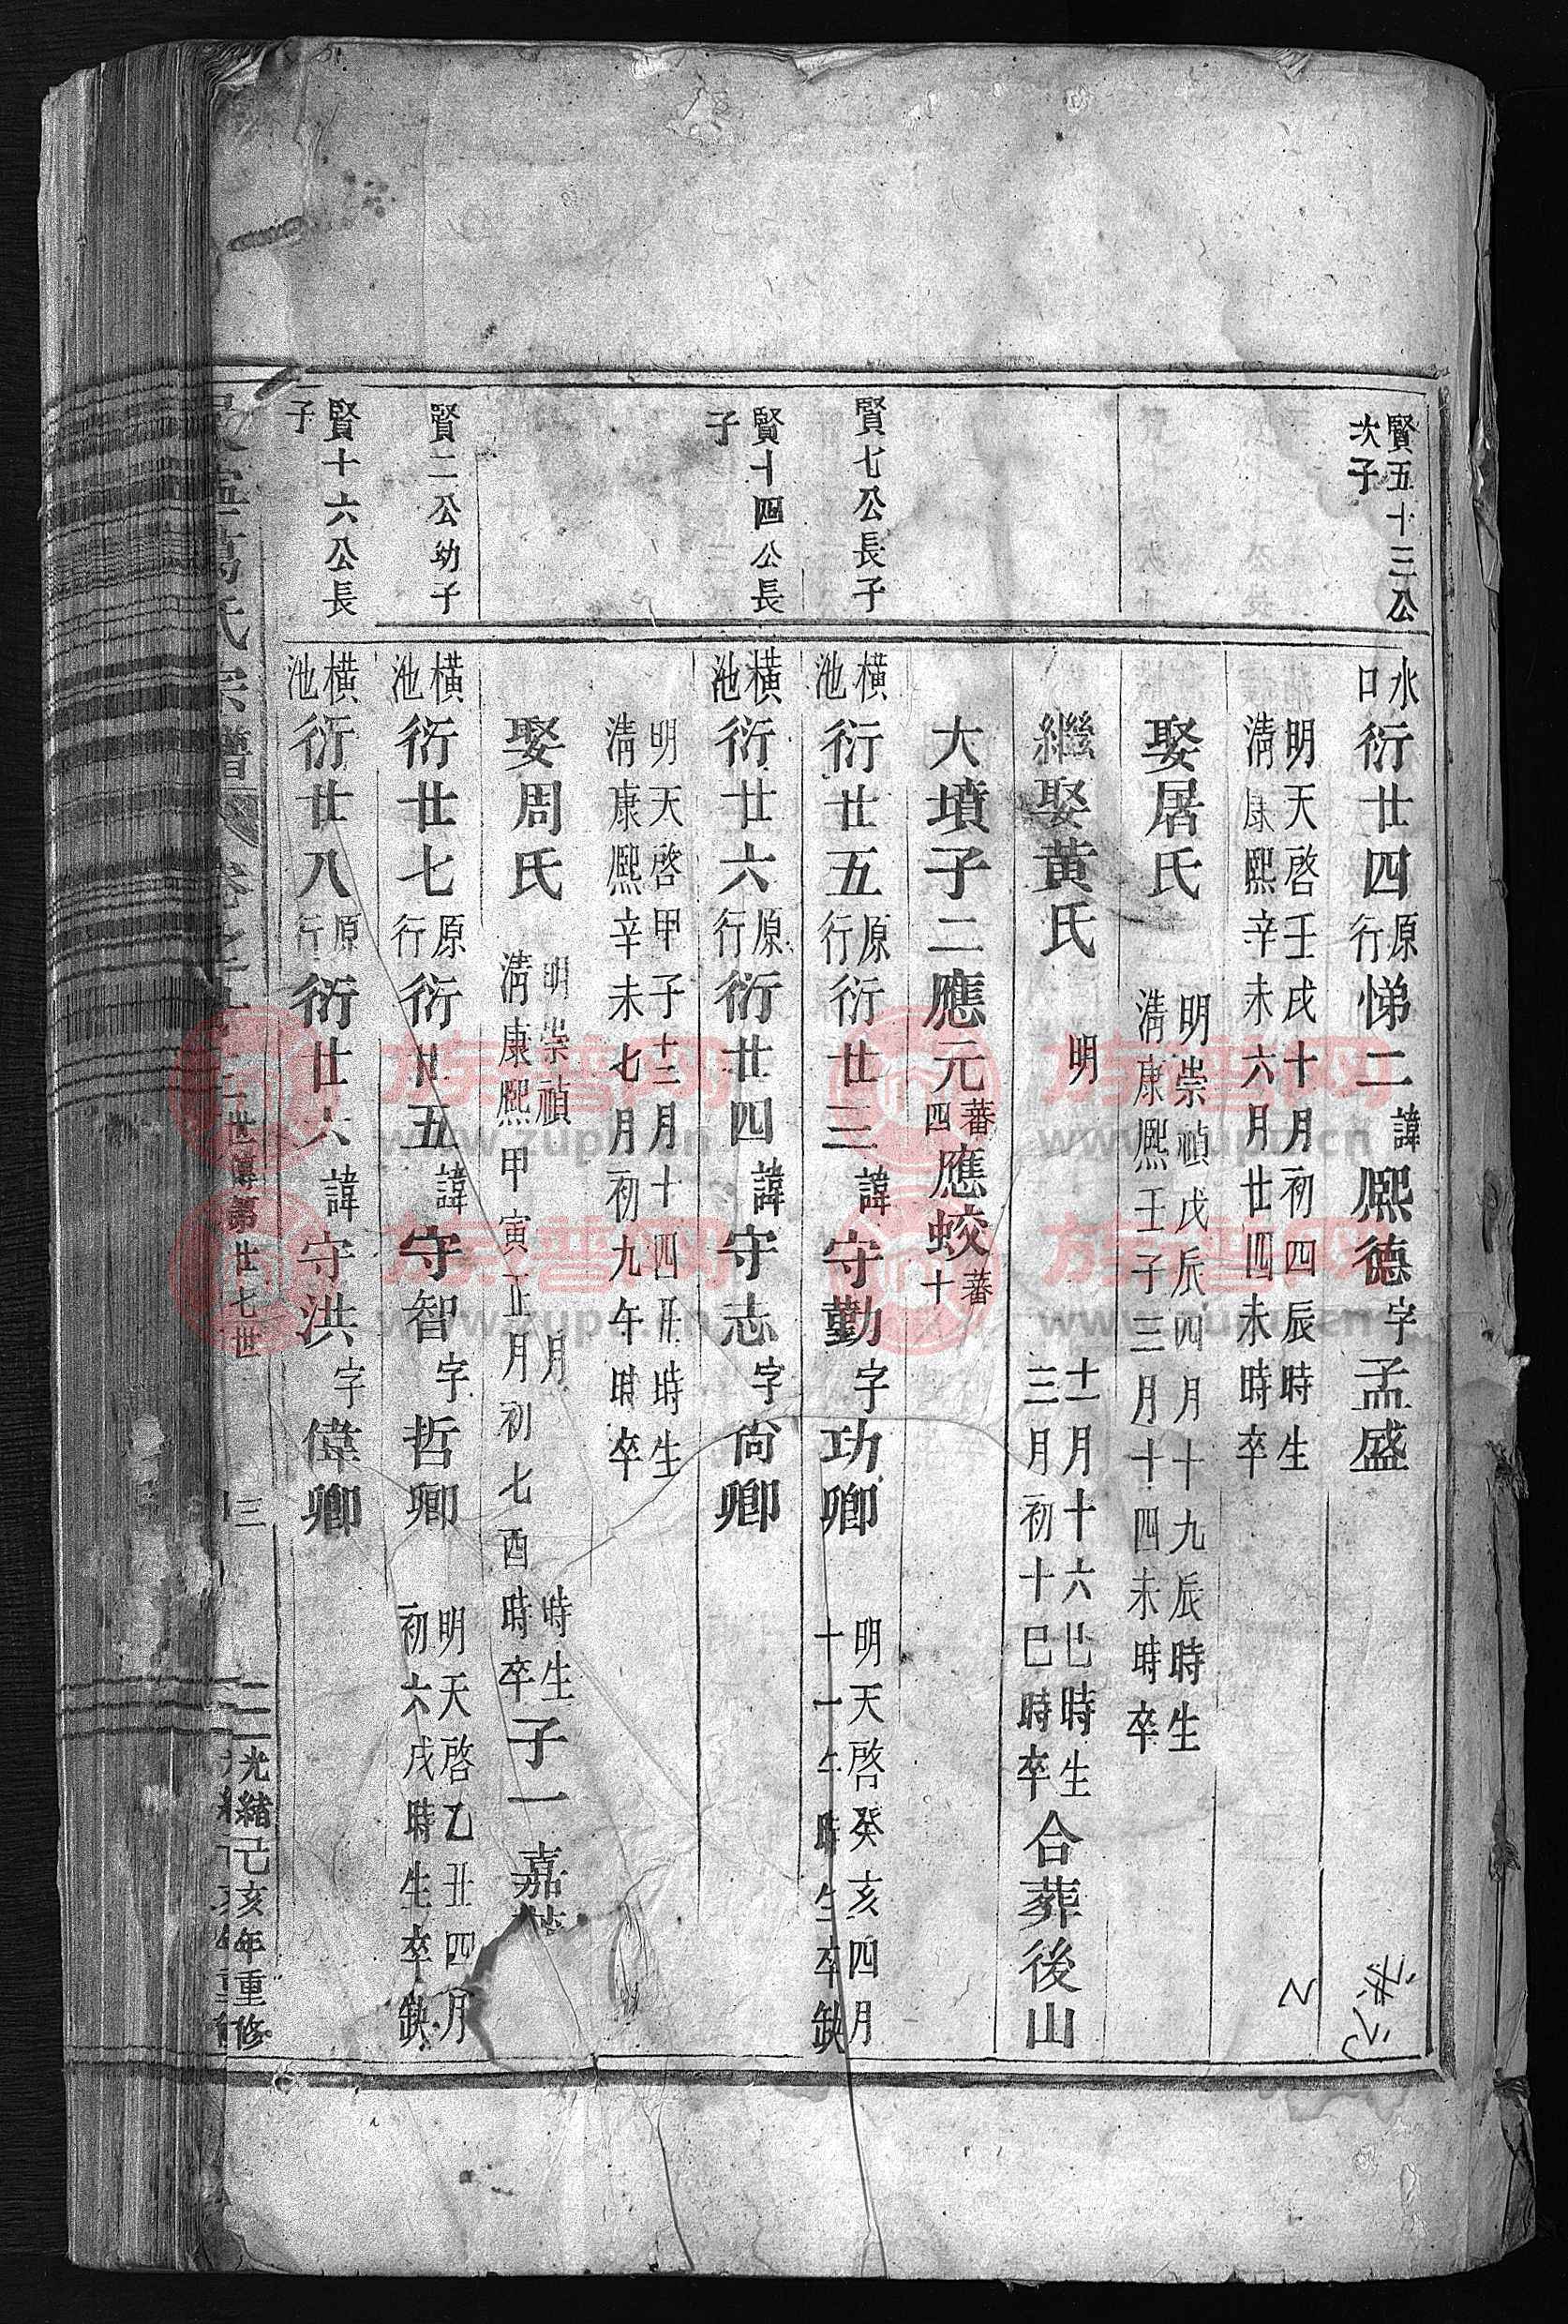 賢五十三公
次子
水口
衍廿四
原行
悌二
諱
熈德
字
孟盛
明天啓壬戌十月初四辰時生
清康熙辛未六月廿四未時卒
娶居氏
明崇禎戊辰四月十九辰時生
清康熙壬子三月十四未時卒
繼娶黃氏
明 十一月十六巳時生
三月初十巳時卒
合葬後山
大墳子二應元
蕃四
應蛟
蕃十
賢七公長子
橫池
衍廿五
原行
衍廿三
諱
守勤
字
功卿
明天啓癸亥四月
十一午時生卒缺
賢十四公長
子
橫池
衍廿六
原行
衍廿四
諱
守志
字
尙卿
明天啓甲子十二月十四丑時生
清康熙辛未七月初九午時卒
娶周氏
明崇禎 月 時生
清康熙甲寅正月初七酉時卒
子一嘉
賢二公幼子
橫池
衍廿七
原行
衍廿五
諱
守智
字
哲卿
明天啓乙丑四月
初六戌時生卒缺
賢十六公長
子
橫池
衍廿八
原行
衍廿六
諱
守洪
字
偉卿
氏宗譜
世傳第廿七世
三
光緒己亥年重修
族普网
www.zupu.cn
族普网
www.zupu.cn
族普网
www.zupu.cn
族普网
www.zupu.cn